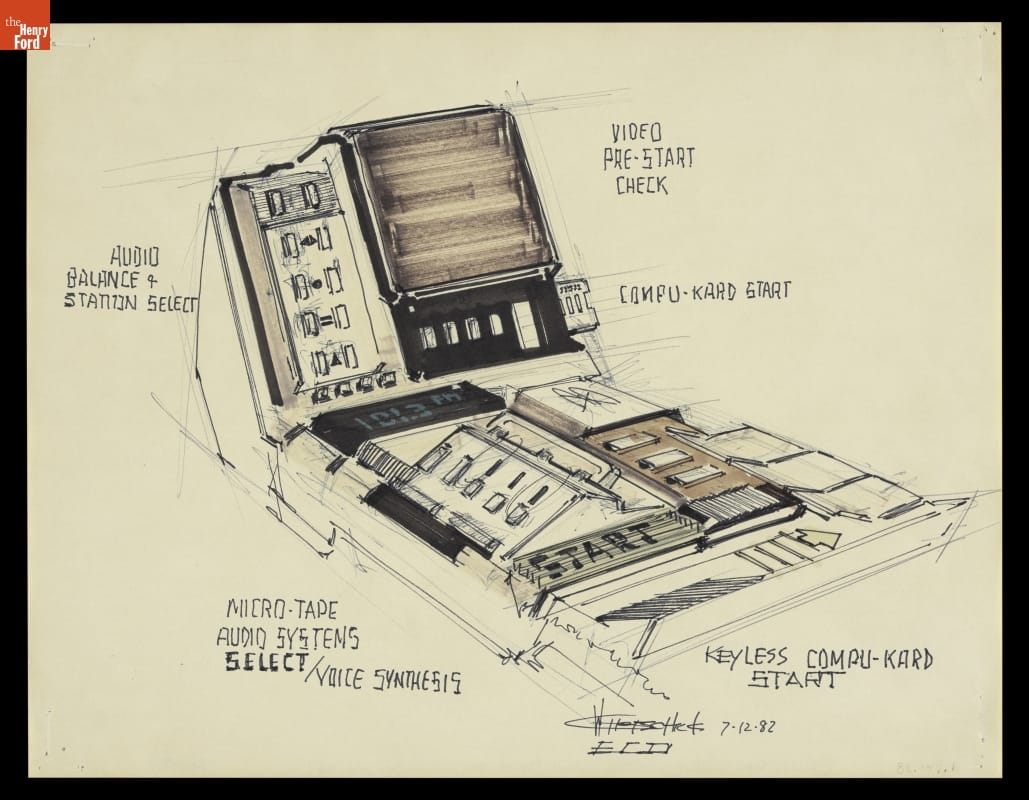 the
Henry
Ford
VIDEO
PRE-START
CHECK
AUDIO
BALANCE &
STATION SELECT
COMPU-KARD START
101.3 FM
START
MICRO-TAPE
AUDIO SYSTEMS
SELECT/VOICE SYNTHESIS
KEYLESS COMPU-KARD
START
7-12-82